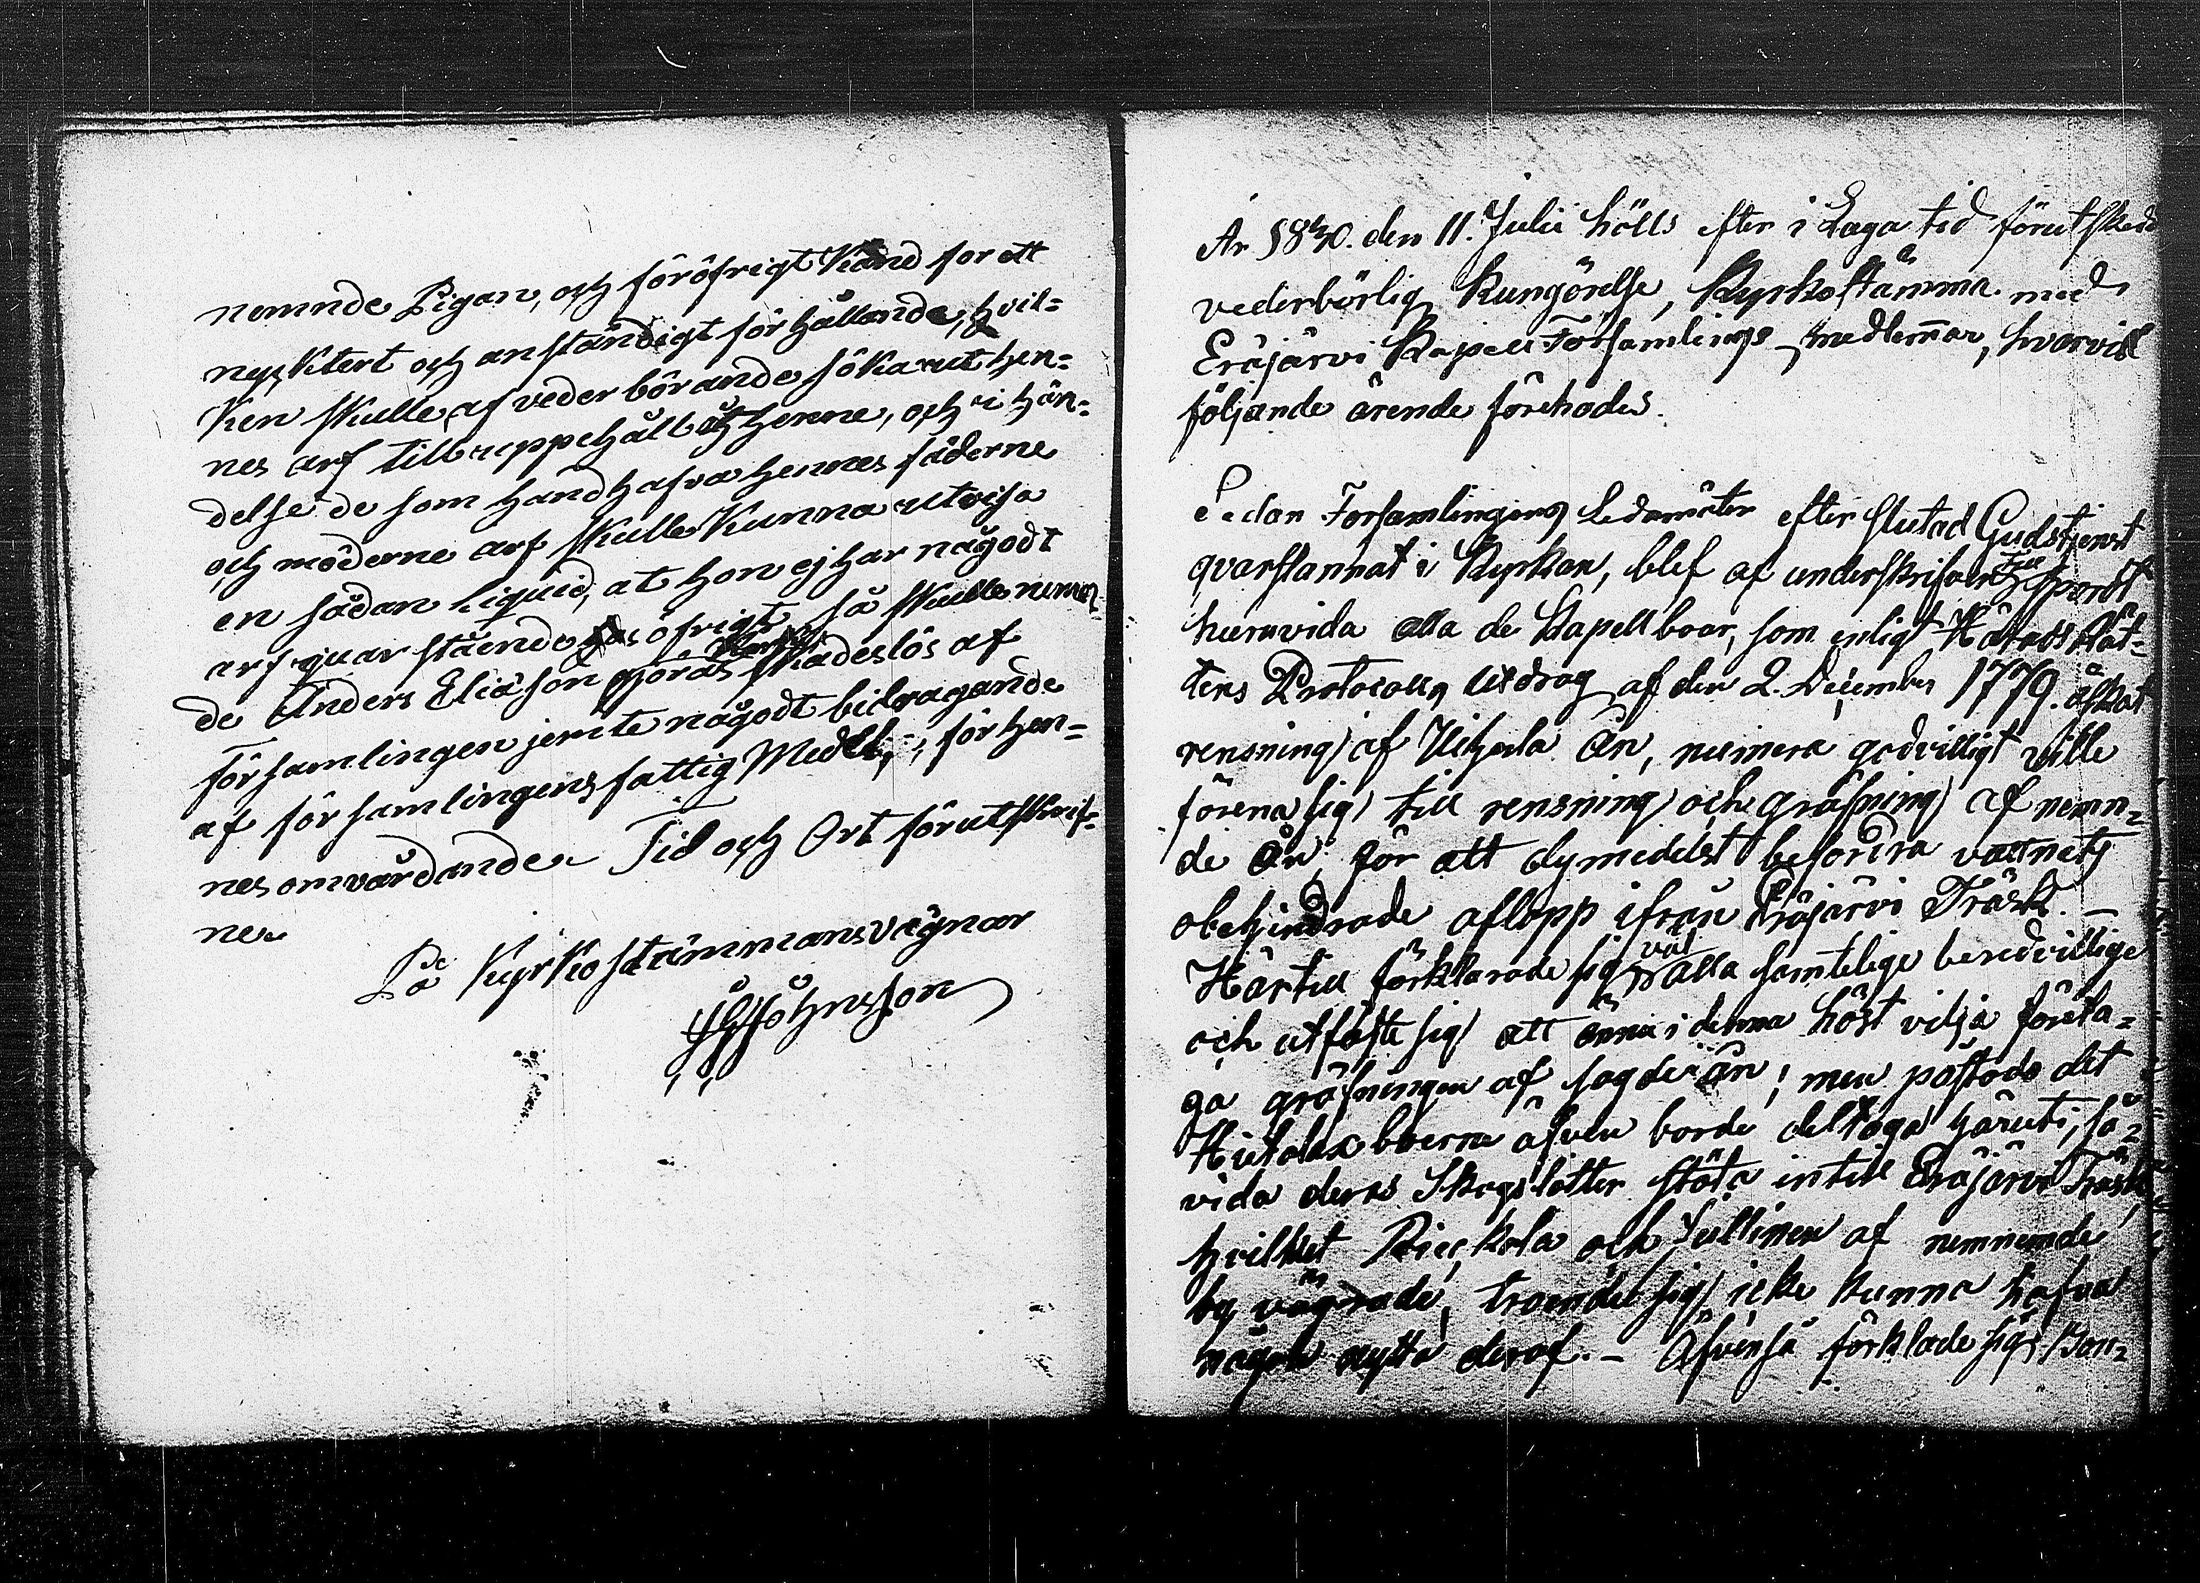 nemnde Pigan, och föröfrigt Känd for ett
nycktert och anständigt förhållande, hvil=
ken skulle af vederbörande söka ut hen=
nes arf till uppehåll åt henne, och i hän=
delse de som handhafva hennes fäderne
och möderne arf skulle Kunna utvisa
en sådan liquid, at hon ej har någodt
arf quarstående öfrigt, så skulle nemn=
de Anders Eliæson göras skadeslös af
Församlingen jemte någodt bidragande
af församlingens fattig Medel, för hen=
nes omvårdande. Tid och Ort förutskrif=
ne.
På Kyrkostämmans vägnar
Johnsson
År 1840. den 11. Julii hölls efter i Laga tid förutskedd
vederbörlig Kungörelse, Kyrkostämma med
Eräjärvi Kapell Församlings medlemmar, hvarvid
följande ärende förehades.
Sedan Församlingens Ledamöter efter slutad Gudstjenst
qvarstannat i Kyrkan, blef af underskrifven tillspordt
huruvida alla de Kapellboar, som enligt Häradsrät=
tens Protocolls Utdrag af den 2. December 1779. åskat
rensning af Uiherla Ån, numera godvilligt ville
förena sig till rensning och gräfning af nemn=
de Ån, för att dymedelst befordra vattnets
obehindrade aflopp ifrån Eräjärvi Träsk. —
Härtill förklarade sig väl alla samtelige beredvillige
och utfäste sig att ännu i denna höst vilja företa=
ga gräfningen af sagde ån; men påstodo det
Hirtolax boerne äfven borde deltaga häruti, så=
vida deras Skogslotter stöta intill Eräjärvi Träsk,
hvilket och Jullinen af nemnde
by vägrade, troende sig icke kunna hafva
någon nytta deraf. — Äfvenså förklade sig Bon=